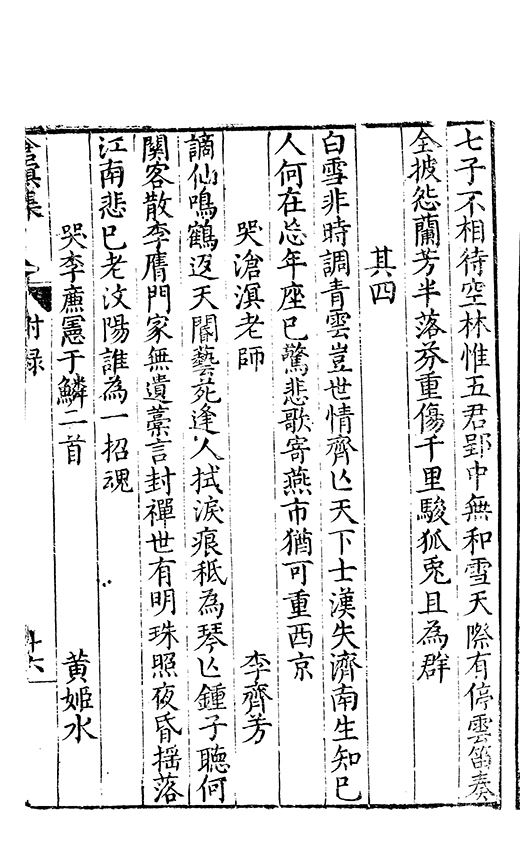 七子不相待空林惟五君郢中無和雪天際有停雲笛奏
全披怨蘭芳半落芬重傷千里駿狐兎且為群
其四
白雪非時調青雲豈世情齊亾天下士漢失濟南生知己
人何在忘年座已驚悲歌寄燕市猶可重西京
哭滄溟老師 李齊芳
謫仙鳴鶴返天閽藝苑逢人拭淚痕秪為琴亾鍾子聽何
關客散李膺門家無遺藁言封禪世有明珠照夜昏揺落
江南悲已老汶陽誰為一招魂
哭李廉憲于鱗二首 黄姬水
滄溟集 附録 十六